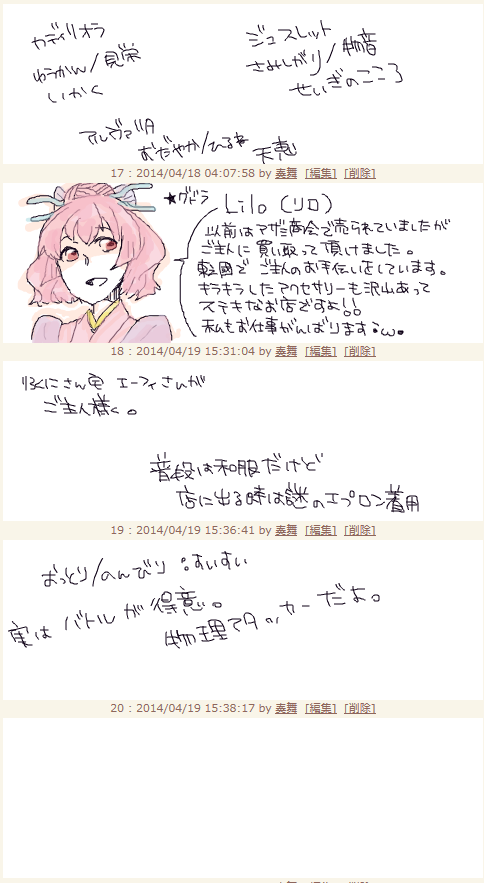 カディリオラ
ゆうかん/見栄
いかく
ジュスレット
さみしがり/物音
せいぎのこころ
アルヴァリタ
おだやか/ひるね
天恵
17 : 2014/04/18 04:07:58 by 奏舞 [編集] [削除]
★グドラ
Lilo (リロ)
以前はアザミ商会で売られていましたが
ご主人に買い取って頂けました。
東国でご主人のお手伝いをしています。
キラキラしたアクセサリーも沢山あって
ステキなお店ですよ!!
私もお仕事がんばります・ω・
18 : 2014/04/19 15:31:04 by 奏舞 [編集] [削除]
りくにさん宅 エーフィさんが
ご主人様く。
普段は和服だけど
店に出る時は謎のエプロン着用
19 : 2014/04/19 15:36:41 by 奏舞 [編集] [削除]
おっとり/のんびり :すいすい
実はバトルが得意。
物理アタッカーだよ。
20 : 2014/04/19 15:38:17 by 奏舞 [編集] [削除]